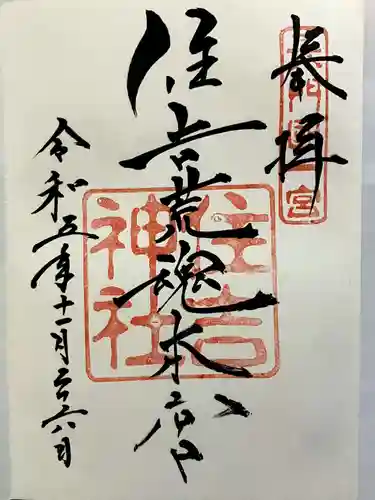 奉拝
長門國一宮
住吉荒魂本宮
住吉神社
令和五年十一月二十六日